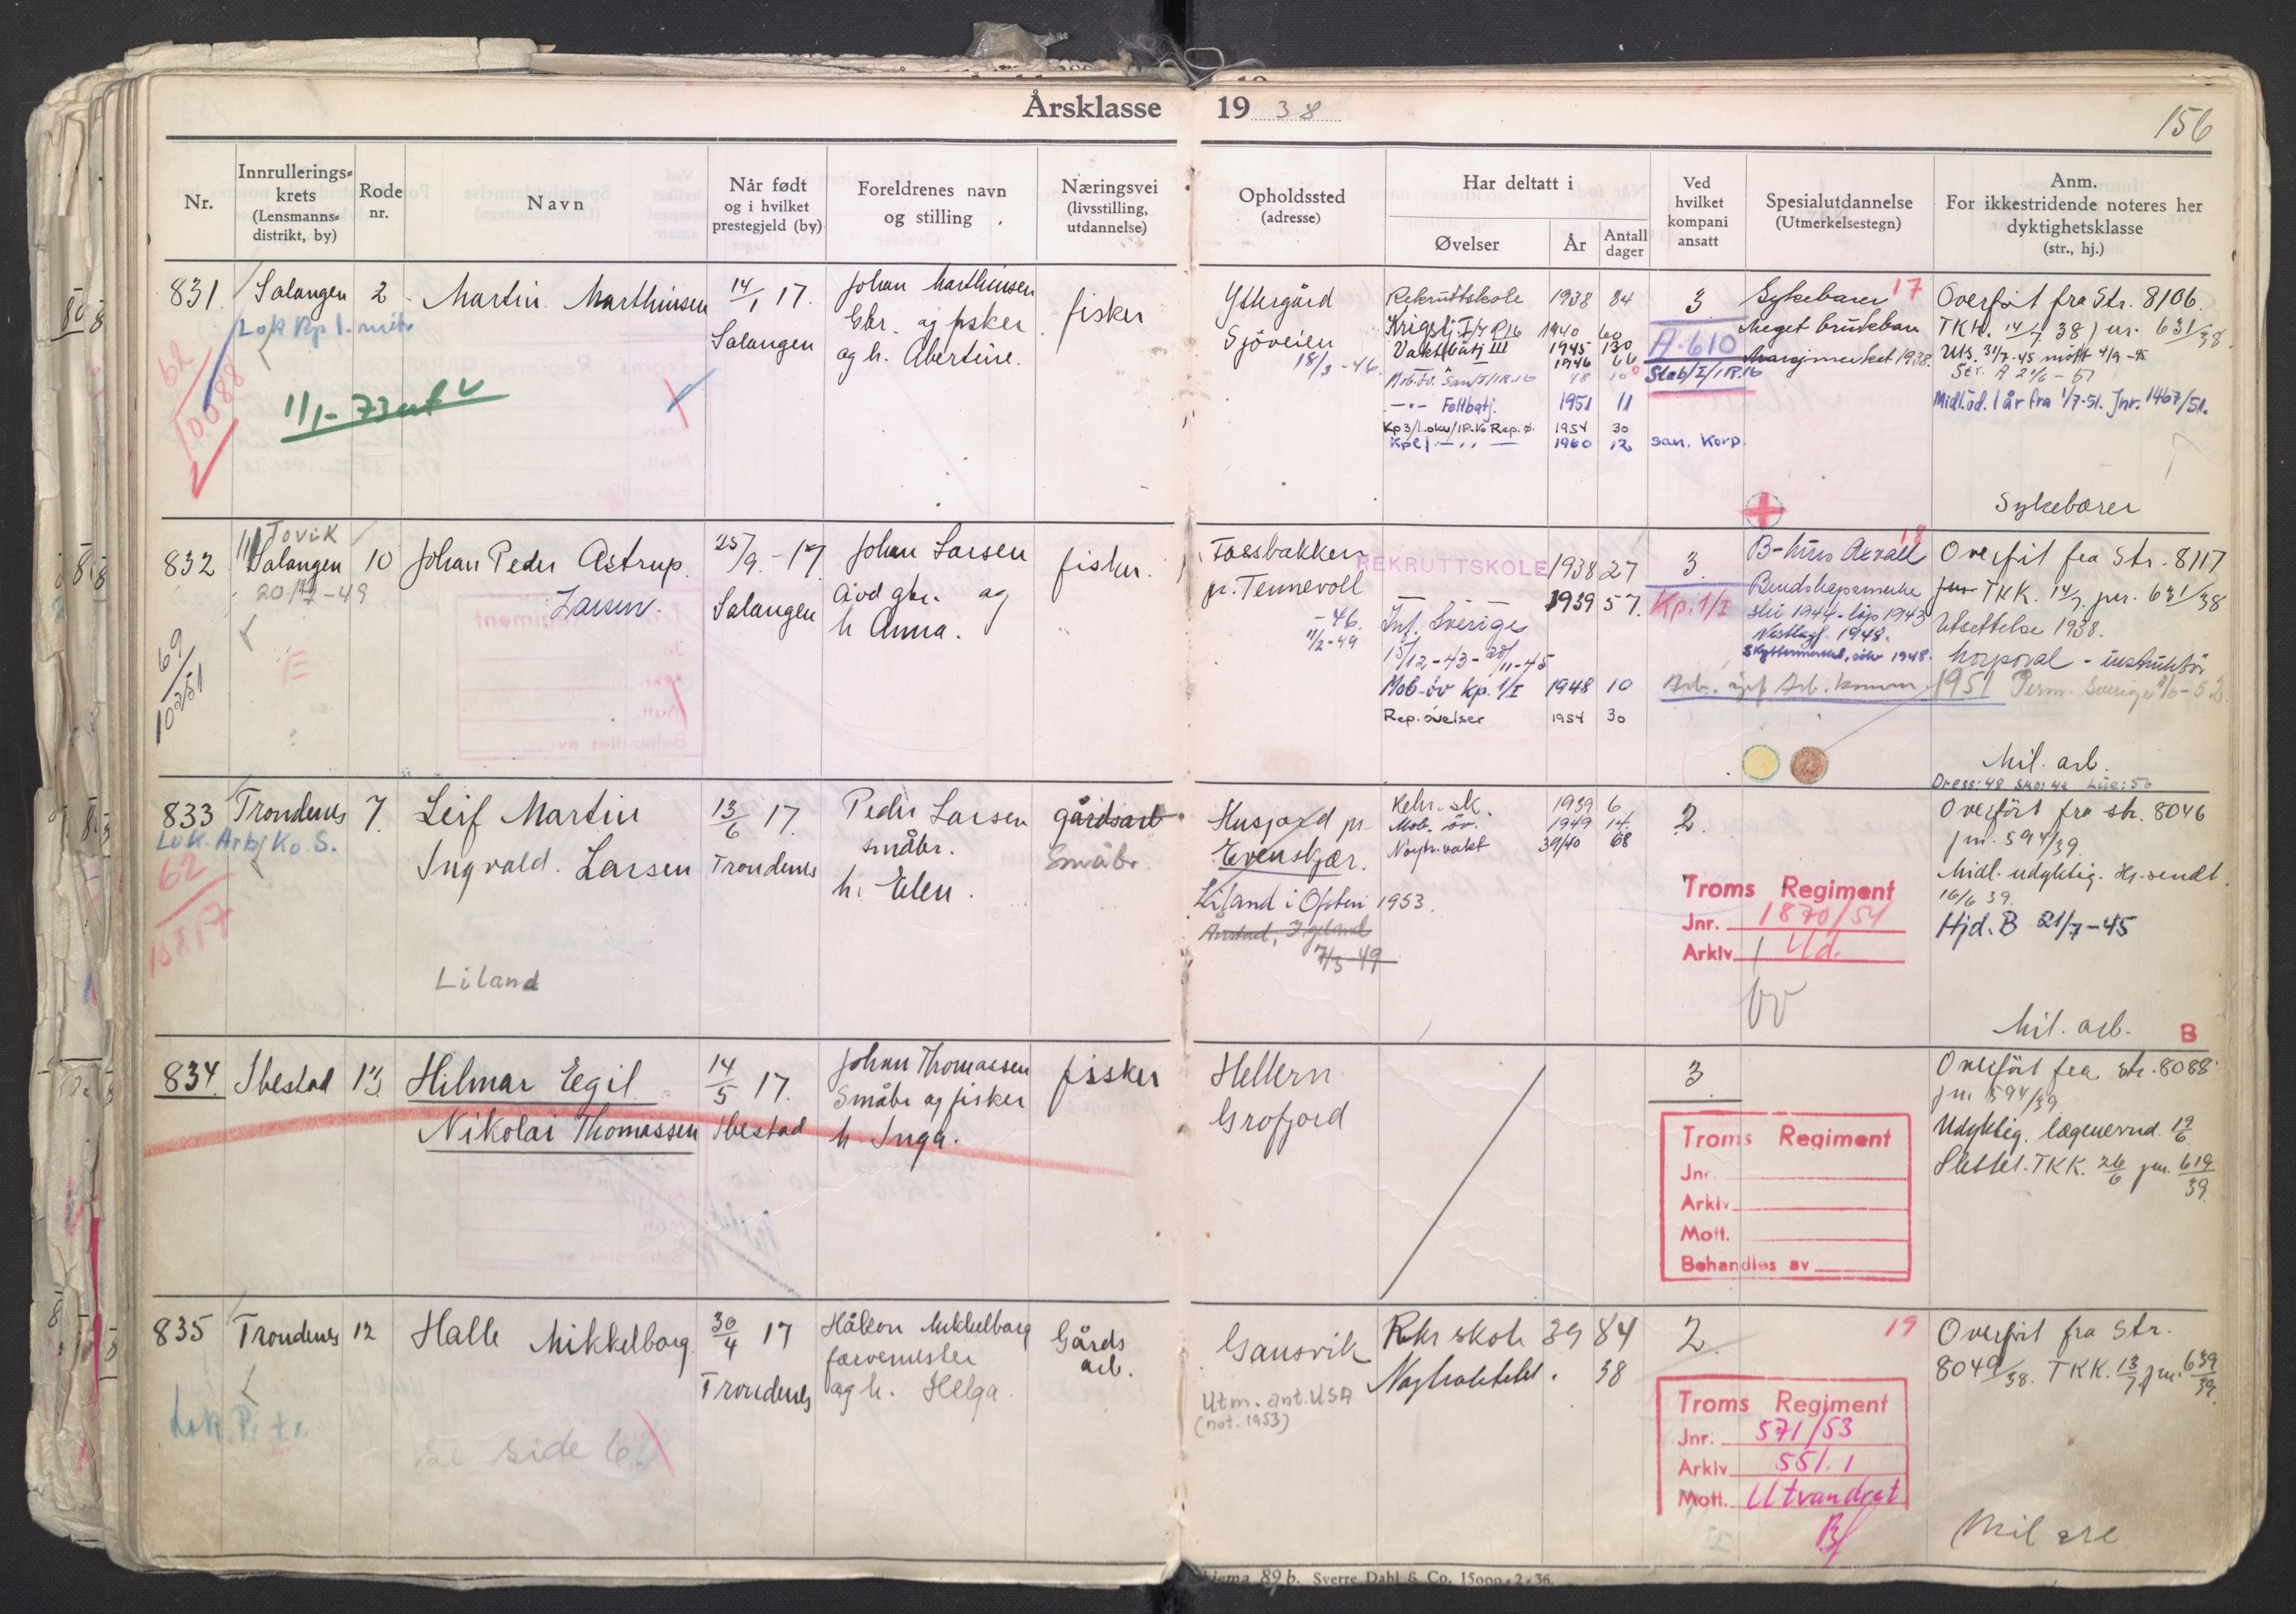 Årsklasse 19 38
156
Nr.
Innrullerings-
krets
(Lensmanns-
distrikt, by)
Rode
nr.
Navn
Når født
og i hvilket
prestegjeld (by)
Foreldrenes navn
og stilling
Næringsvei
(livsstilling,
utdannelse)
Opholdssted
(adresse)
Har deltatt i
Øvelser
År
Antall
dager
Ved
hvilket
kompani
ansatt
Spesialutdannelse
(Utmerkelsestegn)
Anm.
For ikkestridende noteres her
dyktighetsklasse
(str., hj.)
831
Salangen
2
Martin Marthinsen
14/1 17.
Salangen
Johan Marthinsen
Gbr. og fisker
og h. Abertine.
fisker
62
10088
11/1-73 utf
Yttergård
Sjöveien
18/3-46.
Rekruttskole 1938 84
Krigstj. I/IR16 1940 60
Vaktbatj III 1945 130
1946 66
Mob.öv. San/I/IR.16 48 10
-"- Feltbatj. 1951 11
Kp 3/Lokv/IR.16 Rep.ø. 1954 30
1960 12
3
A-610
Stab/I/IR.16
san. Korp.
Sykebærer 17
Meget brukbar
Marsjmerket 1938.
Overfört fra Str. 8106.
TKK. 14/7 38 jnr. 631/38.
Uts. 31/7-45 mött 4/9-45
Str. A 21/6-51
Midl.ud. 1 år fra 1/7-51. Jnr. 1467/51.
Sykebærer
832
Tovik
Salangen
20/12-49
10
Johan Peder Astrup
Larsen.
25/9.-17.
Salangen
Johan Larsen
gbr. og
h Anna.
fisker.
69
10251
Fossbakken
pr. Tennevoll
-46.
11/2-49
REKRUTTSKOLE 1938 27
1939 57.
Int. Sverige
15/12-43-28/11-45
Mob-öv Kp. 1/I 1948 10
Rep.øvelser 1954 30
3.
Kp. 1/I
18
Ski 1944-löp 1943
1948.
Skyttermerket, sölv 1948.
Overfört fra Str. 8117
TKK. 14/7. jnr. 631/38
Utsettelse 1938.
korporal - instruktör
1951 Perm. Sverige 4/6-52
Mil. arb.
Dress: 48 Sko: 42
833
Trondenes
Lok. Arb/Ko S.
62
10817
7.
Leif Martin
Ingvald. Larsen
Liland
13/6 17.
Trondenes
Peder Larsen
småbr.
h. Elen.
gårdsarb
Småbr.
Husjord pr
Evenskjær.
Liland i Ofoten 1953.
7/3-49
Rekr. sk. 1939 6
Mob. öv. 1949 14.
Nøytr.vakt 39/40 68
2.
Troms Regiment
Jnr. 1870/54
Arkiv Ud.
Overfört fra str. 8046
jnr. 594/39
Midl. udyktig. Hj.sendt.
16/6 39.
Hjd. B 21/7-45
Mil. arb. B
834.
Ibestad
13
Hilmar Egil
Nikolai Thomassen
14/5 17.
Ibestad
Johan Thomassen
Småbr og fisker
h Inga.
fisker
Hellern
Grofjord
3.
Troms Regiment
Jnr.
Arkiv
Mott.
Behandles av
Overfört fra str. 8088
jnr. 594/39
Udyktig. lægenevnd. 19/6
Slettet. TKK. 26/6 jnr. 619/39.
835
Trondenes
12
Halle Mikkelborg
se side 6.
30/4 17
Trondenes
Håkon Mikkelborg
farvemester
og h. Helga.
Gårds
arb.
Gausvik
Utm. ant. USA
(not. 1953)
Rekr skole 39 84
38
2.
19
Troms Regiment
Jnr. 571/53
Arkiv 551.1
Mott. Utvandret
Overfört fra Str.
8049/38. TKK. 13/7 jnr. 639/39.
89 b. Sverre Dahl & Co. 15000-2-36.